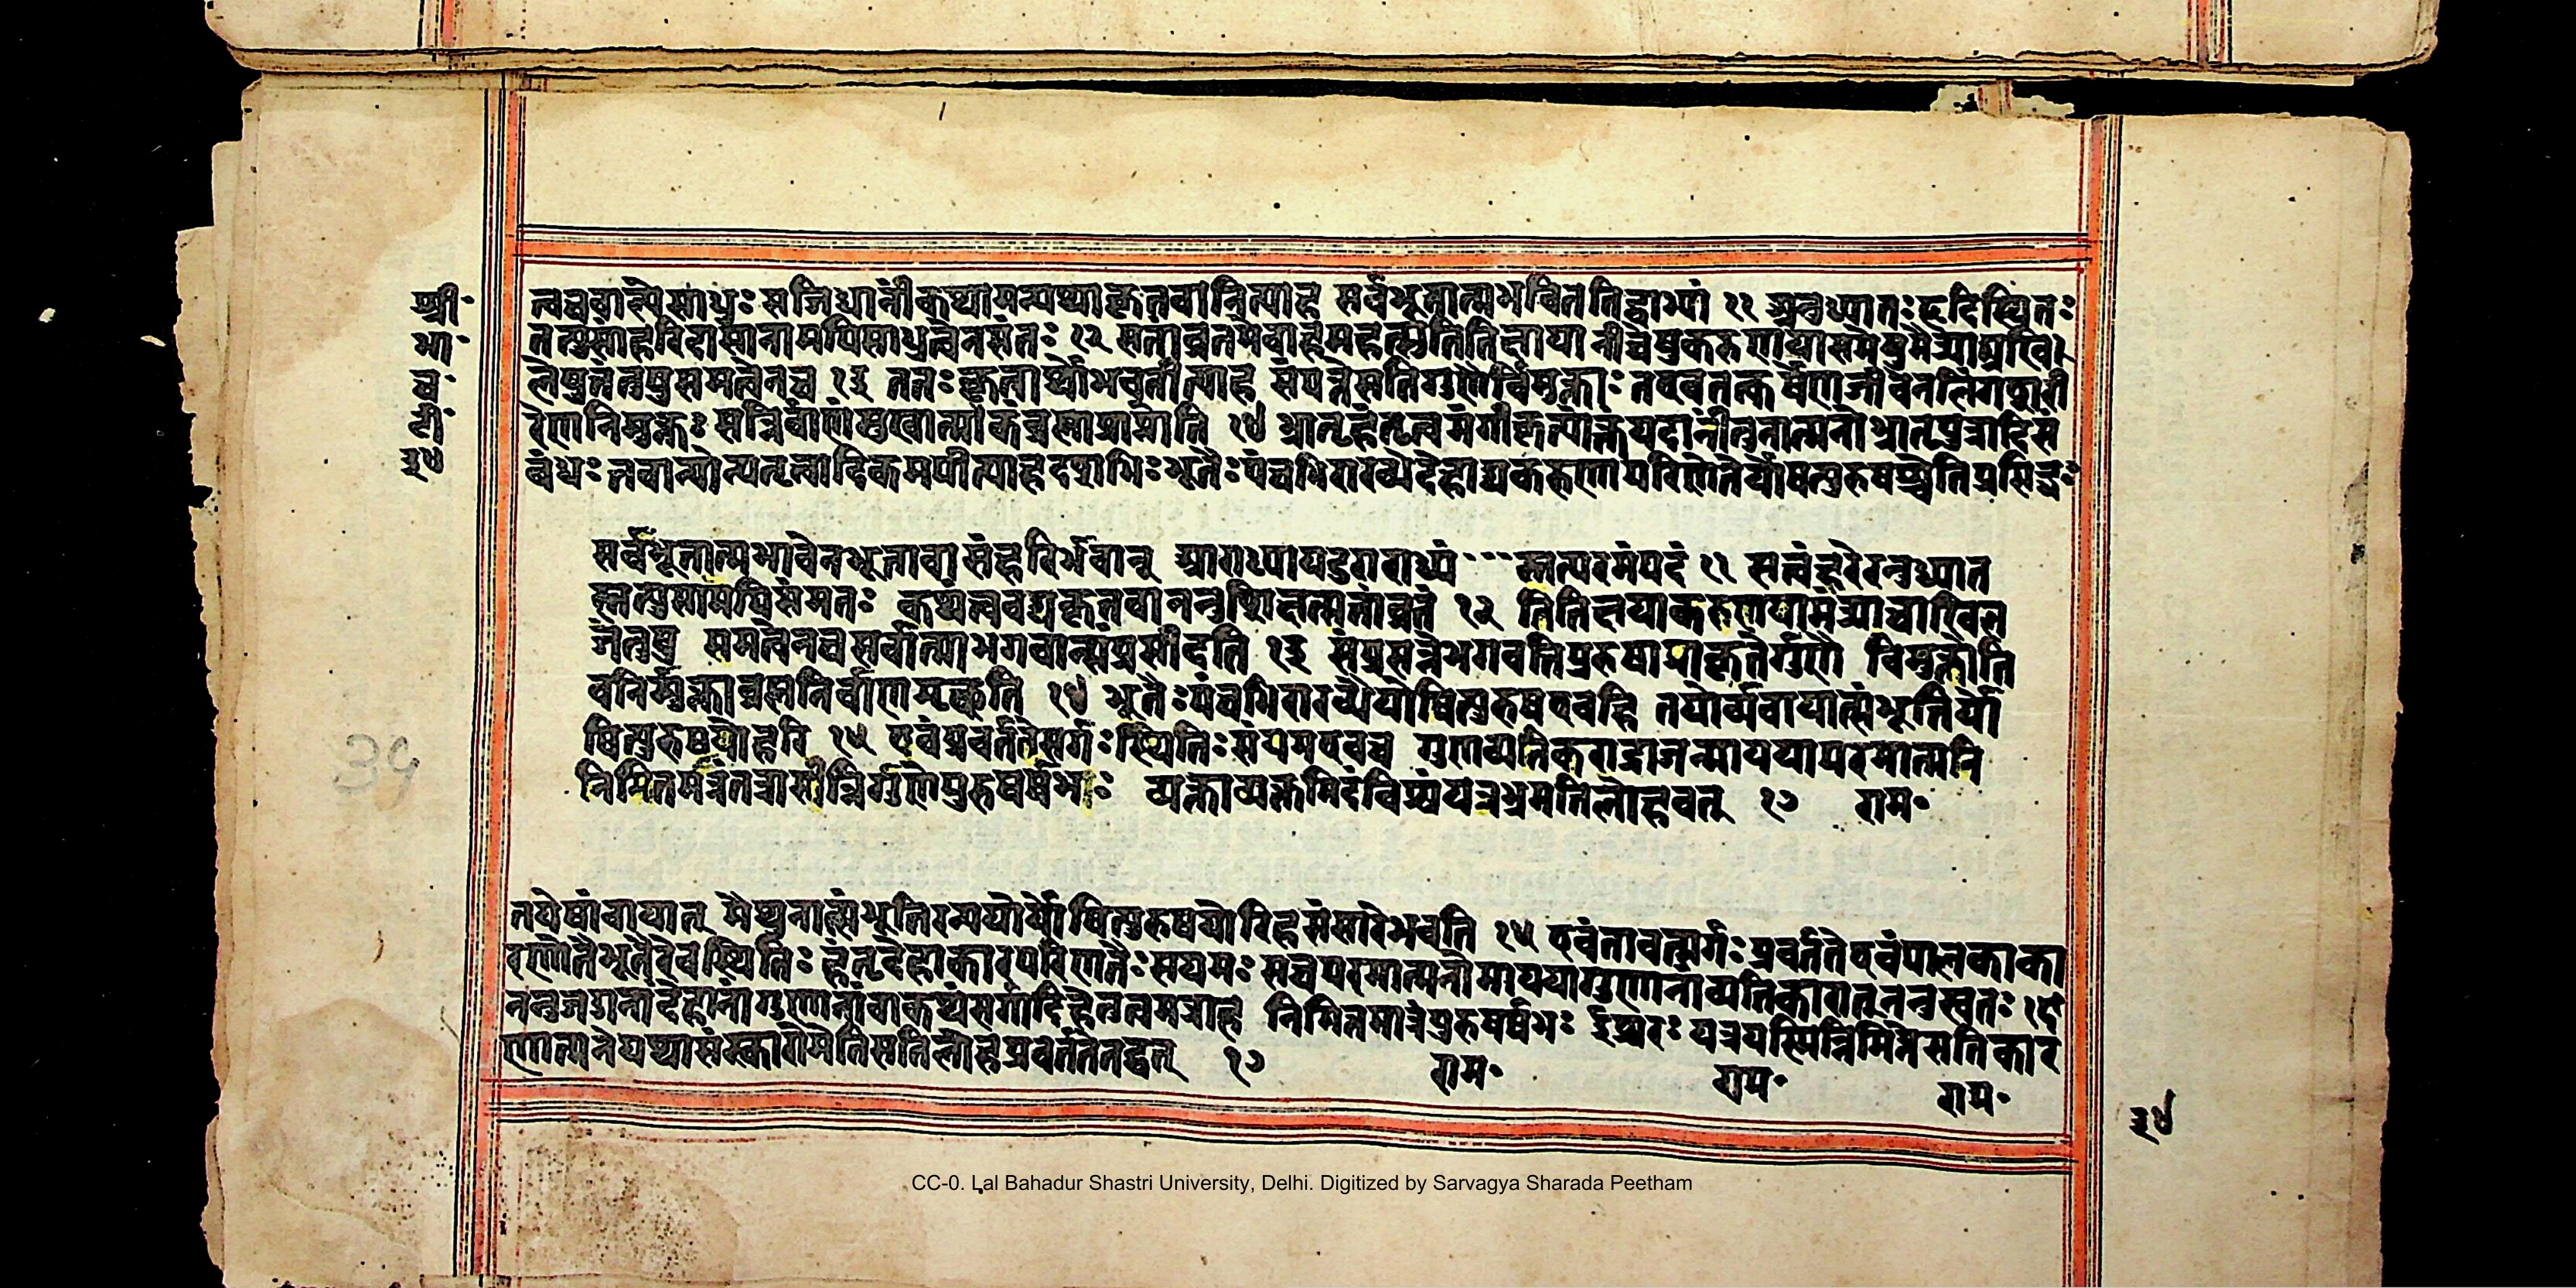 श्री॰
भा॰
च॰
टी॰
३४
त्वववान्येसाधुः सजिघ्रानीकथ्यामन्यथ्याकृतवानित्याह सर्वभूतात्मभवितेतिद्वाभ्यां ११ अनुध्यातः हृदिस्थितः
तत्पुसांहरिदासानामपिसाधुत्वेनसंतः १२ सतांव्रतमेवाह महत्सुतितिक्षया नीचेषुकरुणया समेषुमैत्र्याअखि।
लेषुजंतुषुसमत्वेनच १३ ततः कृतार्थोभवतीत्याह संपन्नेसतिगुणैर्विमुक्तः तएवतत्कर्षणजीवेनलिंगशरी
रेणनिमुक्तः सन्निर्वाणंसुखात्मकंब्रह्मप्राप्नोति १४ भ्रातृहंतृत्वमंगीकृत्योक्तंयदानींतुनात्मनोभ्रातृपुत्रादिसं
बंधः नवान्योन्यहंतृत्वादिकमपीत्याहदशभिः भूतैः पंचभिरारब्धैर्देहाद्यकरूपेणपरिणतैर्योषित्पुरुषश्चेतिप्रसिद्धः
सर्वभूतात्मभावेनभूतावासंहरिर्भवान् आराध्यापदुराराध्यं --- स्तत्परमंपदं ११ सत्वंहरेरनुध्यात
स्तत्पुसामपिसंमतः कथंत्ववद्यंकृतवाननुशिक्षन्सतांव्रतं १२ तितिक्षयाकरुणयामैत्र्याचाखिल
जंतुषु समत्वेनचसर्वात्माभगवान्संप्रसीदति १३ संप्रसन्नेभगवतिपुरुषःप्राकृतैर्गुणै विमुक्तोजी
वनिर्मुक्तोब्रह्मनिर्वाणमृच्छति १४ भूतैः पंचभिरारब्धैर्योषित्पुरुषएवहि तयोर्व्यवायात्संभूतिर्यो
षित्पुरुषयोरिह १५ एवंप्रवर्ततेसर्गः स्थितिः संयमएवच गुणव्यतिकराद्राजन्माययापरमात्मनि
निमित्तमात्रंतत्रासीन्निर्गुणःपुरुषर्षभः व्यक्ताव्यक्तमिदंविश्वंयत्रभ्रमतिलोहवत् १७ राम॰
तयेषांवायात् मैथुनात्संभूतिरन्ययोर्योषित्पुरुषयोरिहसंसारेभवति १५ एवंतावत्सर्गः प्रवर्ततेएवंपालकाका
रणतैर्भूतैरेवस्थितिः हंतृदेहाकारपरिणतैः सयमः सचपरमात्मनोमाययागुणानांव्यतिकरात्ननुस्वतः १६
ननुजडानांदेहानांगुणानांवाकथंसर्गादिहेतुत्वमत्राह निमित्तमात्रंपुरुषर्षभः ईश्वरः यत्रयस्मिन्निमित्तेसतिकार
णात्मनेयथासंस्कारोमेतिसतिलोहंप्रवर्ततेतद्वत् १७ राम॰ राम॰ राम॰
३४
34
CC-0. Lal Bahadur Shastri University, Delhi. Digitized by Sarvagya Sharada Peetham